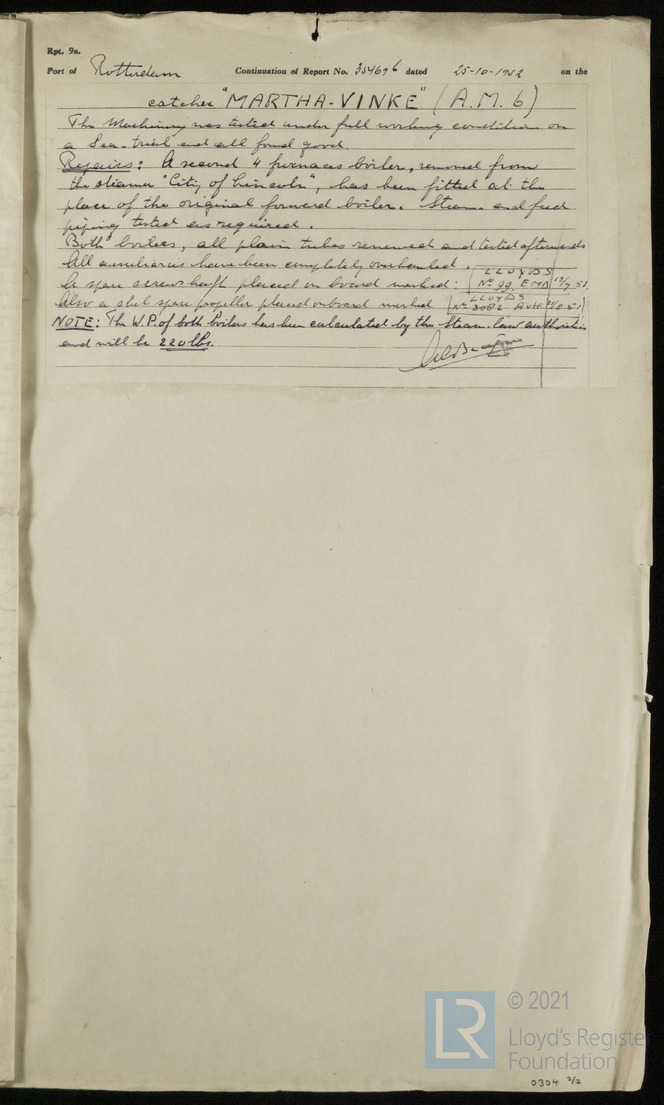 Rpt. 9a.
Port of Rotterdam Continuation of Report No. 35469 b dated 25-10-1952 on the
catcher "MARTHA-VINKE" (A.M. 6)
The Machinery was tested under full working conditions on
a Sea-trial and all found good.
Repairs: A second 4 furnaces boiler, removed from
the steamer "City of Lincoln", has been fitted at the
place of the original forward boiler. Steam- and feed
piping tested as required.
Both boilers, all plain tubes renewed and tested afterwards
All auxiliaries have been completely overhauled.
A spare screwshaft placed on board marked: LLOYDS
No 99. EMB 13/7 51.
Also a steel spare propeller placed onboard marked LLOYDS
No 3082 AvH 5
NOTE: The W.P. of both boilers has been calculated by the Steam-law authorities
and will be 220 lbs.
© 2021
Lloyd's Register
Foundation
0304 2/2